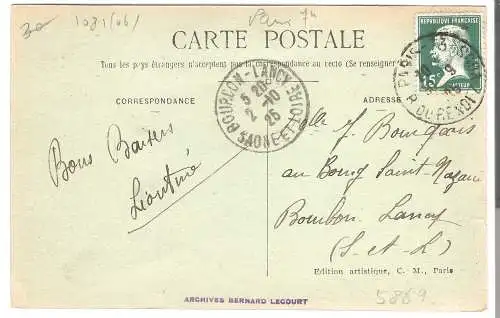 30
1031(06)
Paris 7h
CARTE POSTALE
Tous les pays étrangers n'acceptent pas la correspondance au recto (Se renseigner
CORRESPONDANCE
ADRESSE
REPUBLIQUE FRANÇAISE
15c
PASTEUR
PARIS
BOURBON-LANCY
5 20
2-10
25
SAONE ET LOIRE
Bons Baisers
Léontine
Melle J. Bourgeois
au Bourg Saint-Nazaire
Bourbon-Lancy
(S-et-L)
Edition artistique, C. M., Paris
ARCHIVES BERNARD LECOURT
5889